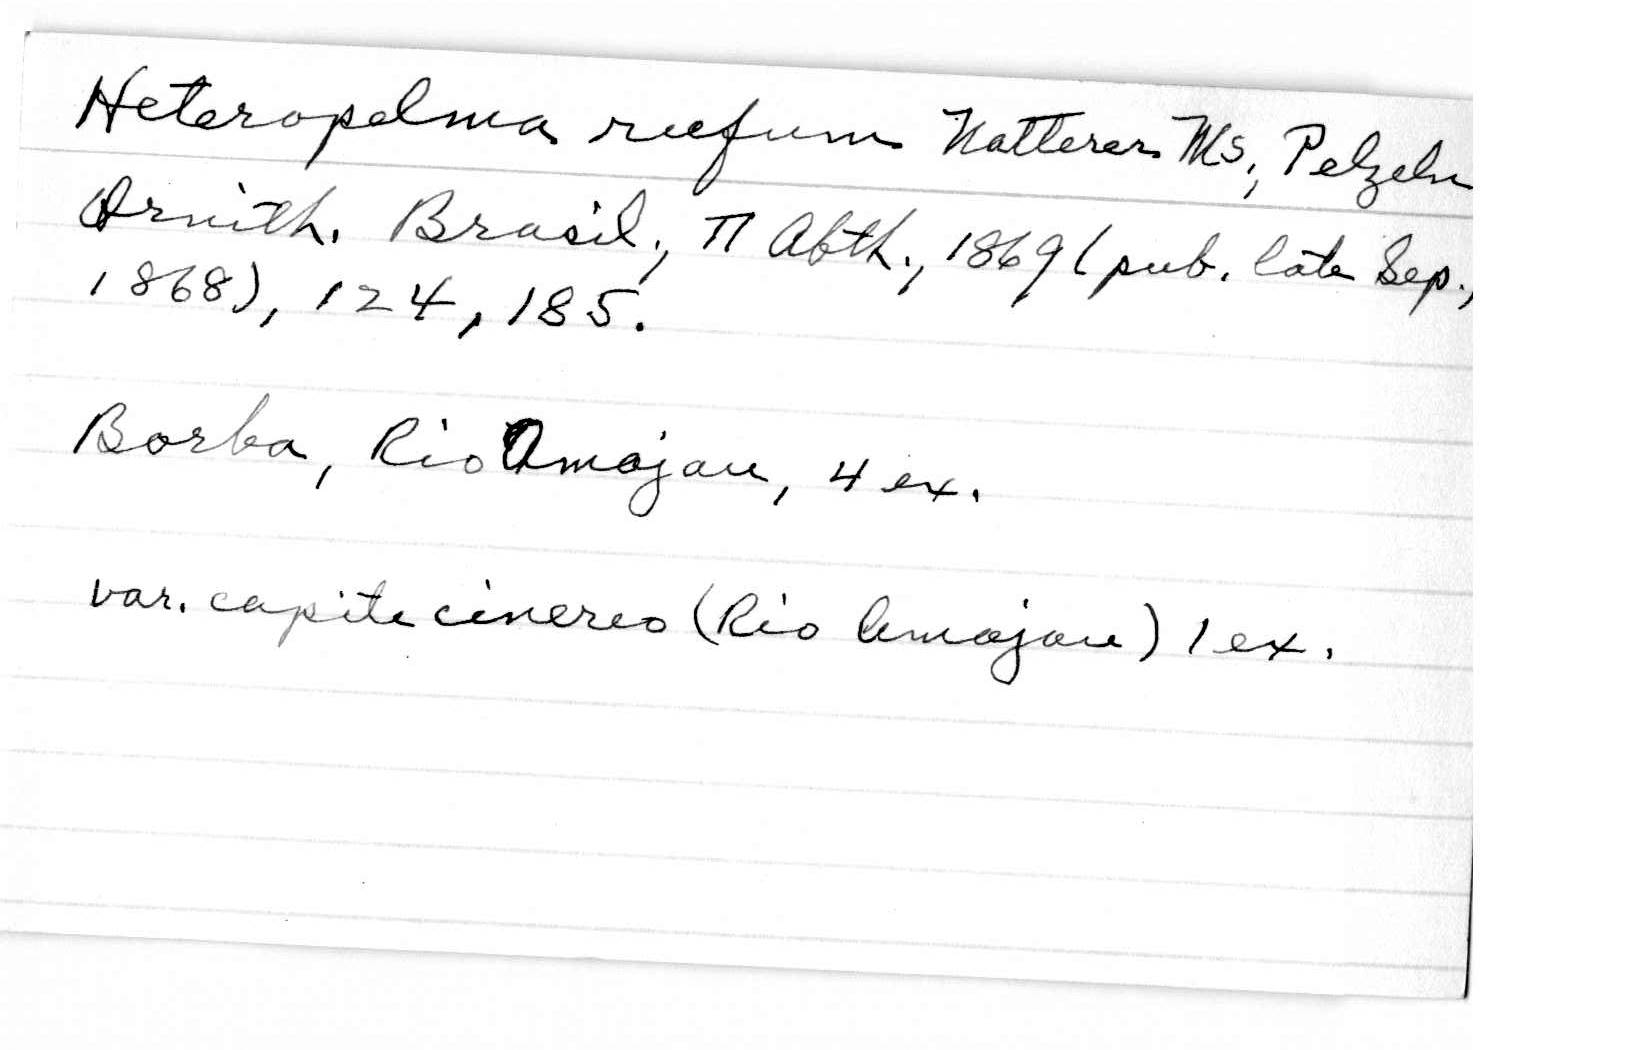 Heteropelma rufum Natterer Ms., Pelzeln
Ornith. Brasil., II Abth., 1869 (pub. late Sep.,
1868), 124, 185.
Borba, Rio Amajau, 4 ex.
var. capite cinereo (Rio Amajau) 1 ex.